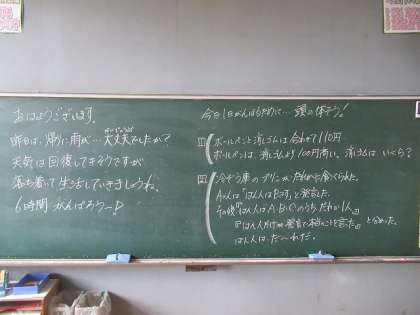 おはようございます。
昨日は、帰りに雨が…大丈夫でしたか?
だいじょうぶ
天気は回復してきそうですが
落ち着いて生活していきましょうね。
6時間 がんばろうー!
今日1日がんばるために… 頭の体そう!
ボールペンと消しゴムは合わせて110円
ボールペンは、消しゴムより100円高い。消しゴムは いくら?
冷ぞう庫のプリンが だれかに食べられた。
Aくんは「はん人はBです」と発言した。
その後「はん人はA・B・Cのうち、だれか1人。」
「はん人だけが発言で本当のことを言った。」と分かった。
はん人は だ〜れだ。